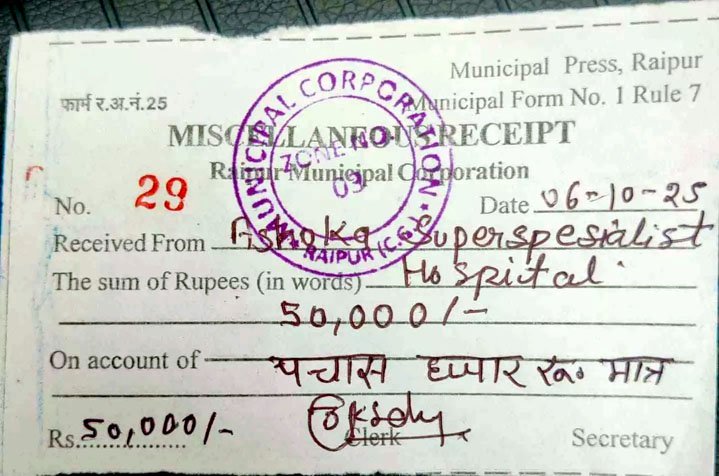 Municipal Press, Raipur
फार्म र.अ.नं.25 Municipal Form No. 1 Rule 7
MISCELLANEOUS RECEIPT
Raipur Municipal Corporation
MUNICIPAL CORPORATION RAIPUR (C.G.)
ZONE NO.
09
No. 29 Date 06-10-25
Received From Ashoka Superspesialist
The sum of Rupees (in words) Hospital
50,000/-
On account of पचास हजार रू० मात्र
Rs. 50,000/- Clerk Secretary